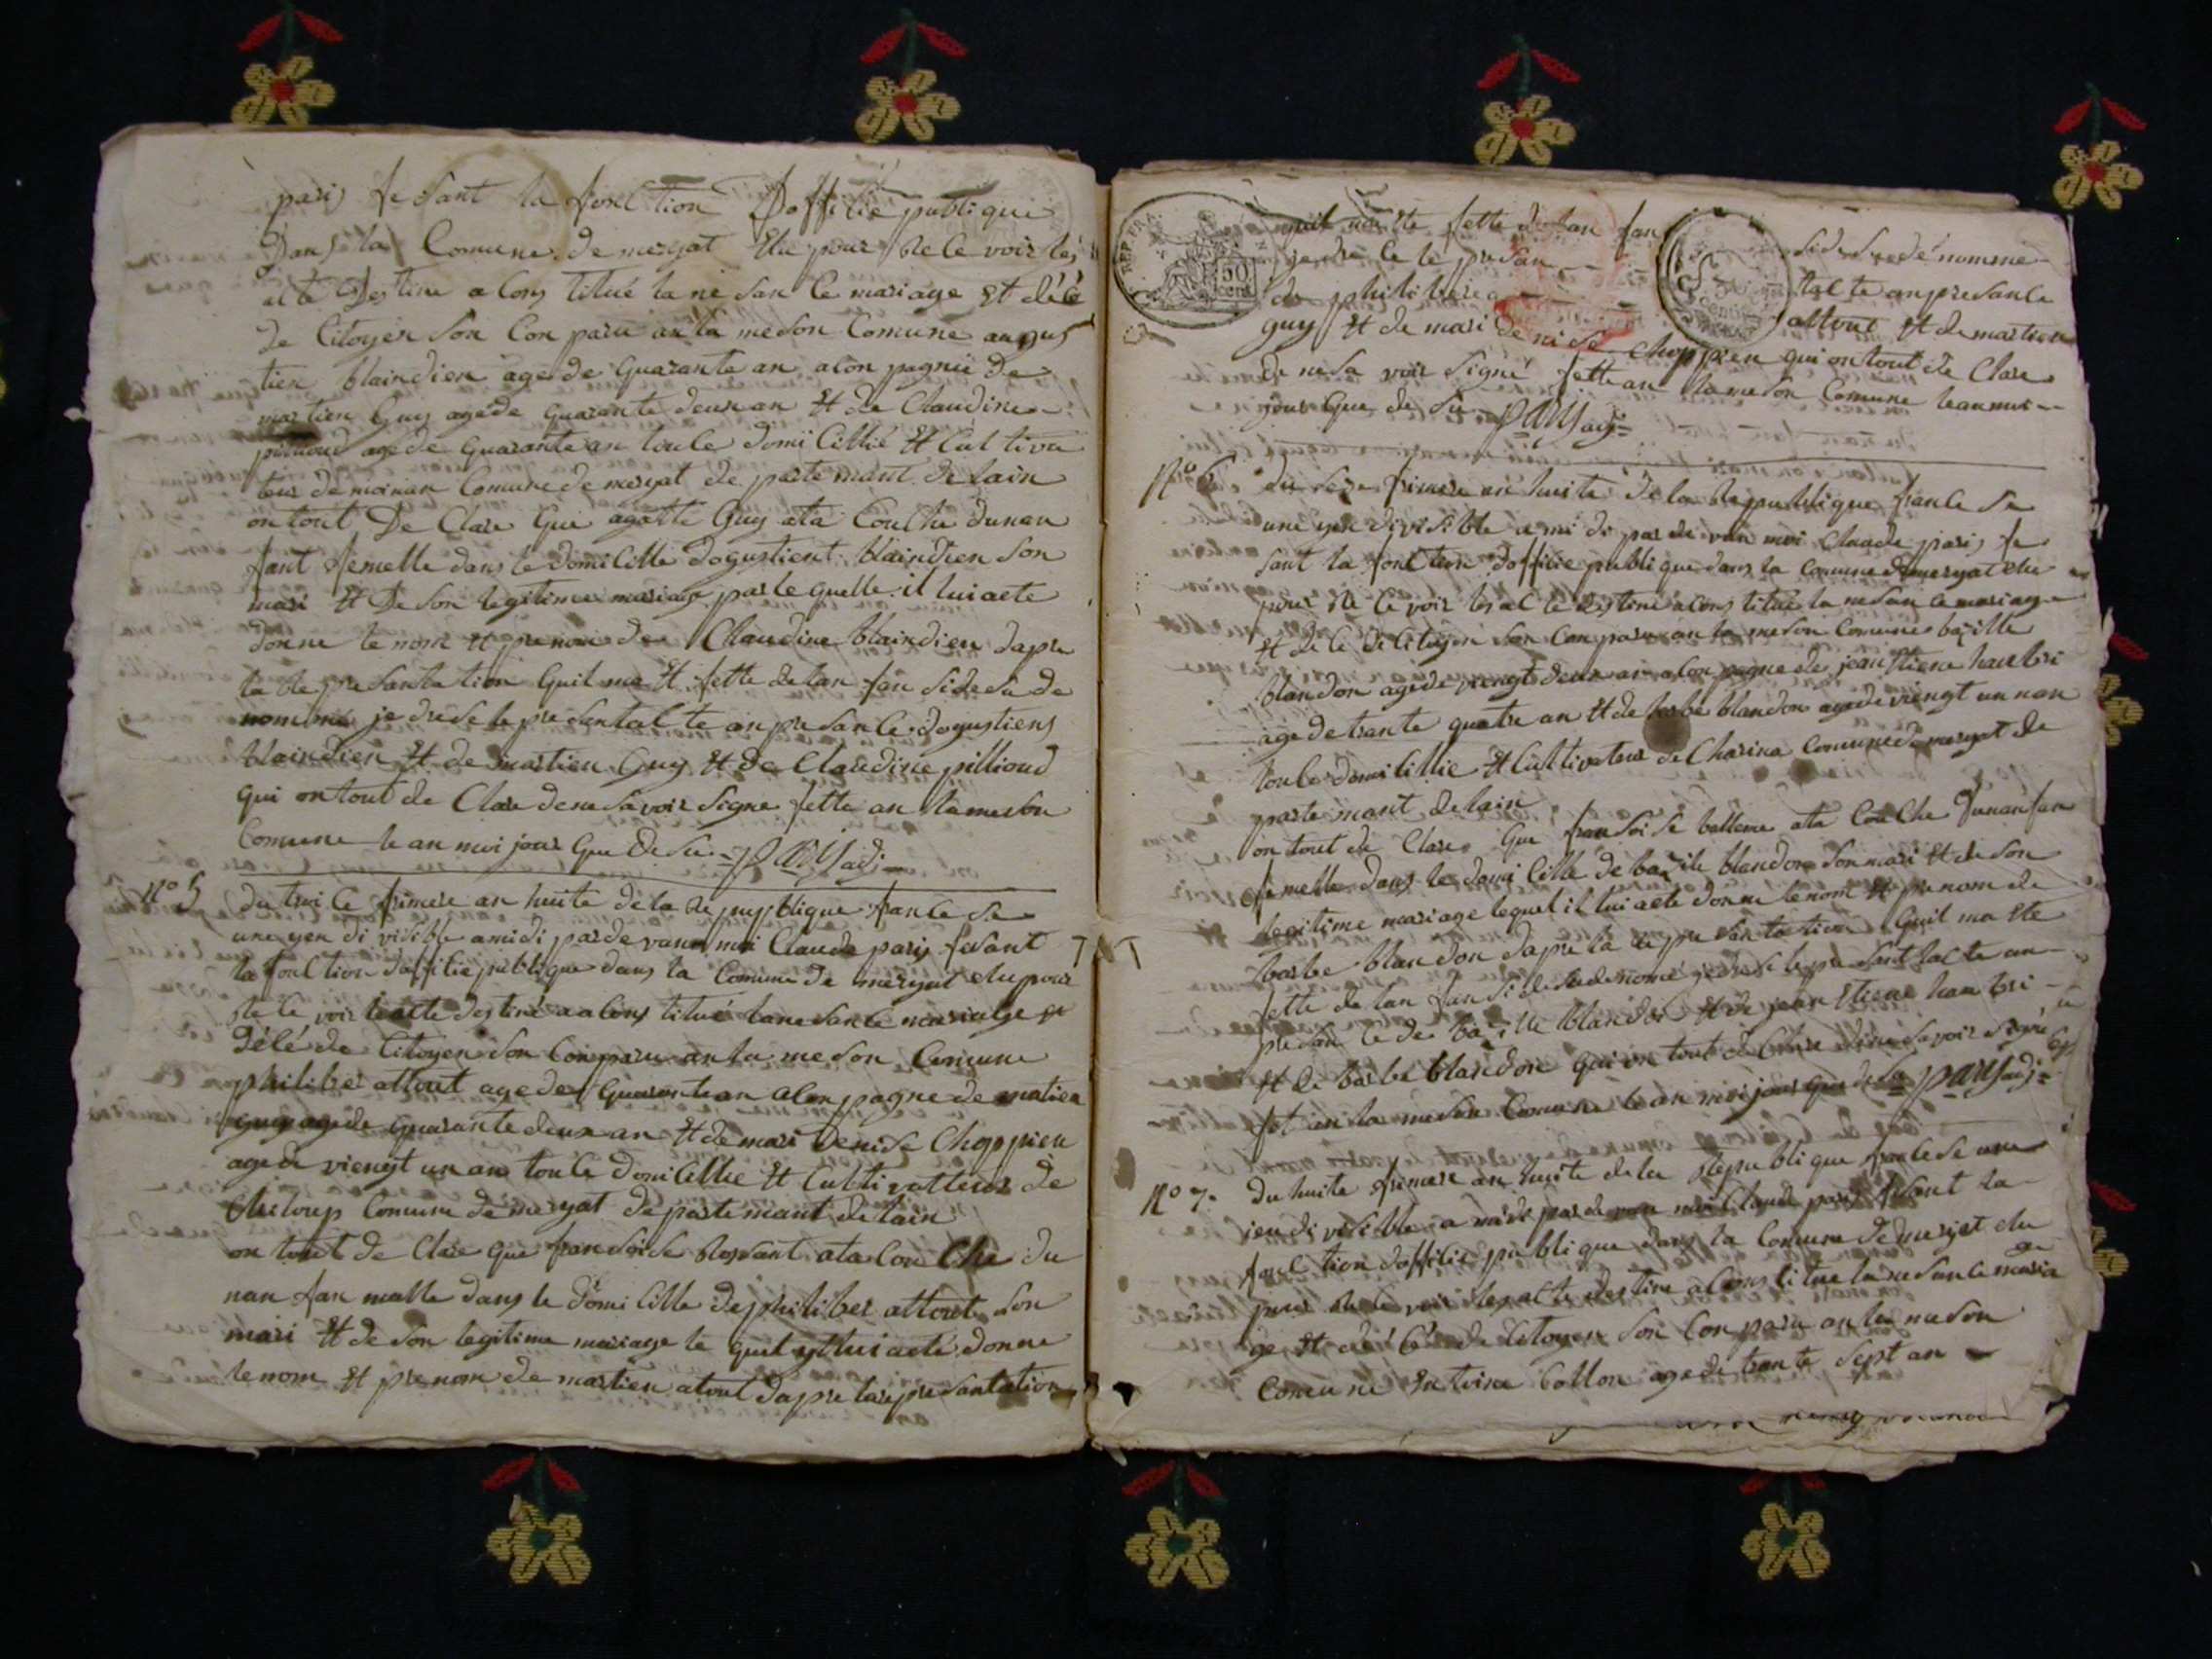 paris fesant la fonction Doffilie publique
Dans la Comune de meryat Elu pour Re le voir les
acte Destine a Cons titué la né san le mariage Et délé
de Citoyen Son Con paru an la meson Comune augus
tien blaindien age de quarante an acon pagnié de
martien Guy agede quarante deux an Et de Claudine
pillioud age de quarante an toule domi Cillié Et Cultiva
teur de Comune de meryat de parte mant de lain
on tout De Clare Que agatte Guy ata Couche dunan
fant femelle dans le domi Cille dogustient blaindien Son
mari Et De Son legitime mariage par le quelle il lui aete
donne le nom Et prenom de Claudine blaindien dapre
la Re presantation Quil ma Et fette de lan fan Sidesu de
nommé je drese le presantacte an presan le dogustiens
blaindien Et de martien Guy Et de Claudine pillioud
qui ontout de Clare denesavoir Signe fette an la meson
Comune le an moi jour Que desu = paris adj =
N° 5 du troi le frimere an huite de la Repupblique franle se
une yen di visible amidi pardevan moi Claude paris fesant
la fonction doffilie publique dans la Comune De meryat elu pour
Re le voir leacte destiné a Cons titué lanesanle mariage Et
délé de Citoyen Son Conparu an la meson Comune
philiber attout age de quarante an alonpagne de matien
guy age de quarante deux an Et de mari denise Choppien
age de viengt un an toule domi Cillie Et Cultivatteur de
Chiloup Comune de meryat departemant de lain
on tout de Clare que fransoise bossant ata Cou Che du
nan fan malle dans le domi Cille de philiber attout Son
mari Et de Son legitime mariage le quel yl lui aeté donne
le nom Et prenom de martien atout dapre la represantation
quil ma Ete fette de lan fan Sidesu dé nomme
je drese le presan tacte anpresanle
de philiber attout Et de martien
guy Et de mari denise Choppien qui ontout de Clare
de nesa voir Signé fette an la meson Comune leanmoi
jour Que de su = paris adj =
N° 6 du frimere an huite de la Republique franle se
une yen divisible a mi di par de van moi Claude paris fe
sant la fonction doffilie publique dans la Comune de meryat elu
pour Re le voir les acte destine a Cons titué la nesan le mariage
Et déle de Citoyen Son Conparu an la meson Comune bazille
blandon age de viengt deux an alon pagne de jean Etiene hanbri
age de trante quatre an Et de barbe blandon age de viengt un nan
toule domi Cillie Et Cultivateur de Charina Comune de meryat de
parte mant de lain
on tout de Clare Que fransoise balleme ata Cou Che dunan fan
femelle dans le domi Cille de bazile blandon Son mari Et de Son
legitime mariage lequel il lui aete donne le nom Et prenom de
barbe blandon dapre la represantation Quil ma Ete
fette de lan fan Sidesu denomé je drese le presant tacte an
presan le de bazille blandon Et de jean Etiene hanbri
Et de barbe blandon qui on tout de Clare dene savoir Signé
fet an la meson Comune le an moi jour que de su = paris adj =
N° 7. du huite frimere an huite de la Republique franlese une
ien di visible a midi parde van moi Claude paris fesant la
fonction doffilie publique dans la Comune de meryat elu
pour Re le voir les acte destine a Cons titue la nesan le maria
ge Et délé de Citoyen Son Conparu an la meson
Comune Entoine Collon age de trante Sept an
REP. FRA.
50 cent.